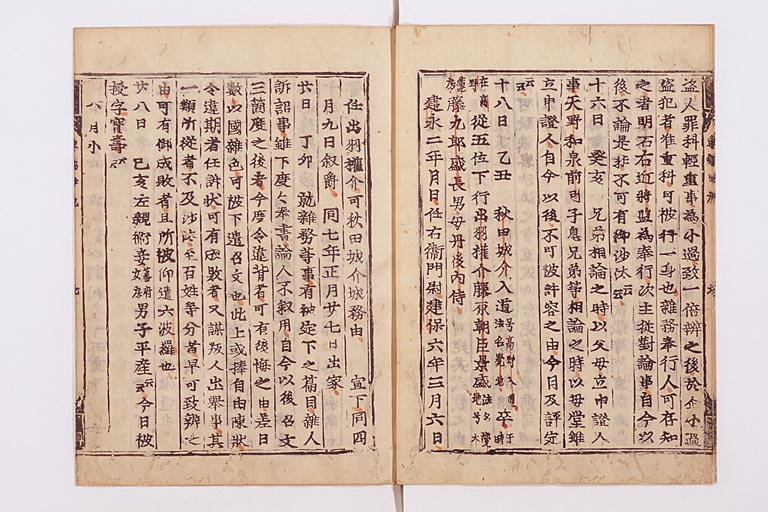 盗人罪科輕重事為小過致一倍辨之後於令小過
盗犯者准重科可被行一身也雜務奉行人可存知
之者明石右近將監為奉行次主從對論事自今以
後不論是非不可有御沙汰云々
十六日 癸亥 兄弟相論之時以父母立申證人
事天野和泉前司子息兄弟等相論之時以母堂雖
立申證人自今以後不可被許容之由今日及評定
云々
十八日 乙丑 秋田城介入道号高野入道法名覺地卒于時
在高野從五位下行出羽權介藤原朝臣景盛法名覺地号大
蓮房藤九郎盛長男母丹後内侍
建永二年月日任右衛門尉建保六年三月六日
任出羽權介可秋田城介城務由 宣下同四
月九日叙爵 同七年正月廿七日出家
廿日 丁卯 就雜務等事有被定下之篇目雜人
訴訟事雖下度々奉書論人不叙用自今以後召文
三箇度之後者今度令違背者可有後悔之由差日
數以國雜色可被下遣召文也此上或捧自由陳狀
令違期者任訴狀可有成敗者又謀叛人出舉事其
一類所從者不及沙汰至百姓等分者早可致辨之
由可有御成敗者且所被仰遣六波羅也
廿八日 己亥左親衛妾幕府男子平産云々今日被
授字寳壽云々
八月小